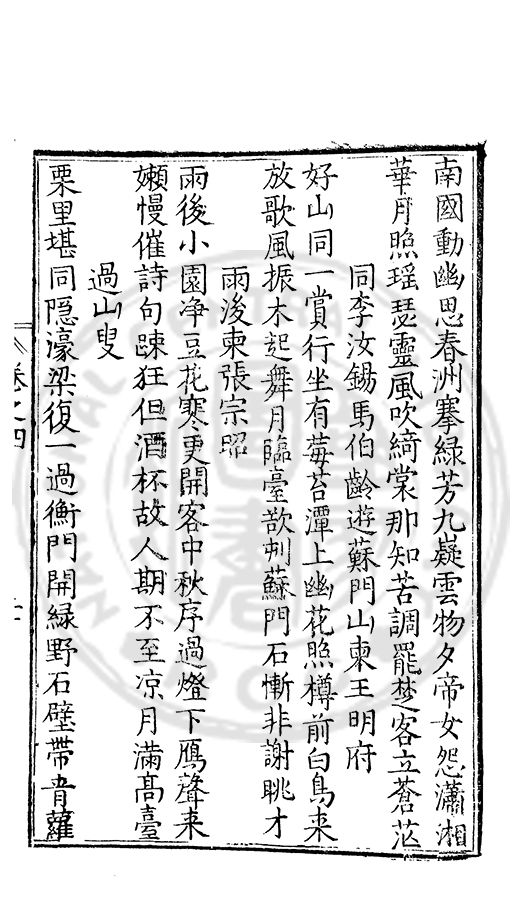 南國動幽思春洲搴綠芳九嶷雲物夕帝女怨瀟湘
華月照瑶瑟靈風吹綺裳那知苦調罷楚客立蒼茫
同李汝錫馬伯齡遊蘇門山柬王明府
好山同一賞行坐有莓苔潭上幽花照樽前白鳥来
放歌風振木起舞月臨臺欲刜蘇門石慚非謝眺才
雨後柬張宗昭
雨後小園净豆花寒更開客中秋序過燈下鴈聲来
嬾慢催詩句踈狂但酒杯故人期不至凉月滿髙臺
過山叟
栗里堪同隐濠梁復一過衡門開緑野石壁帶青蘿
卷之四